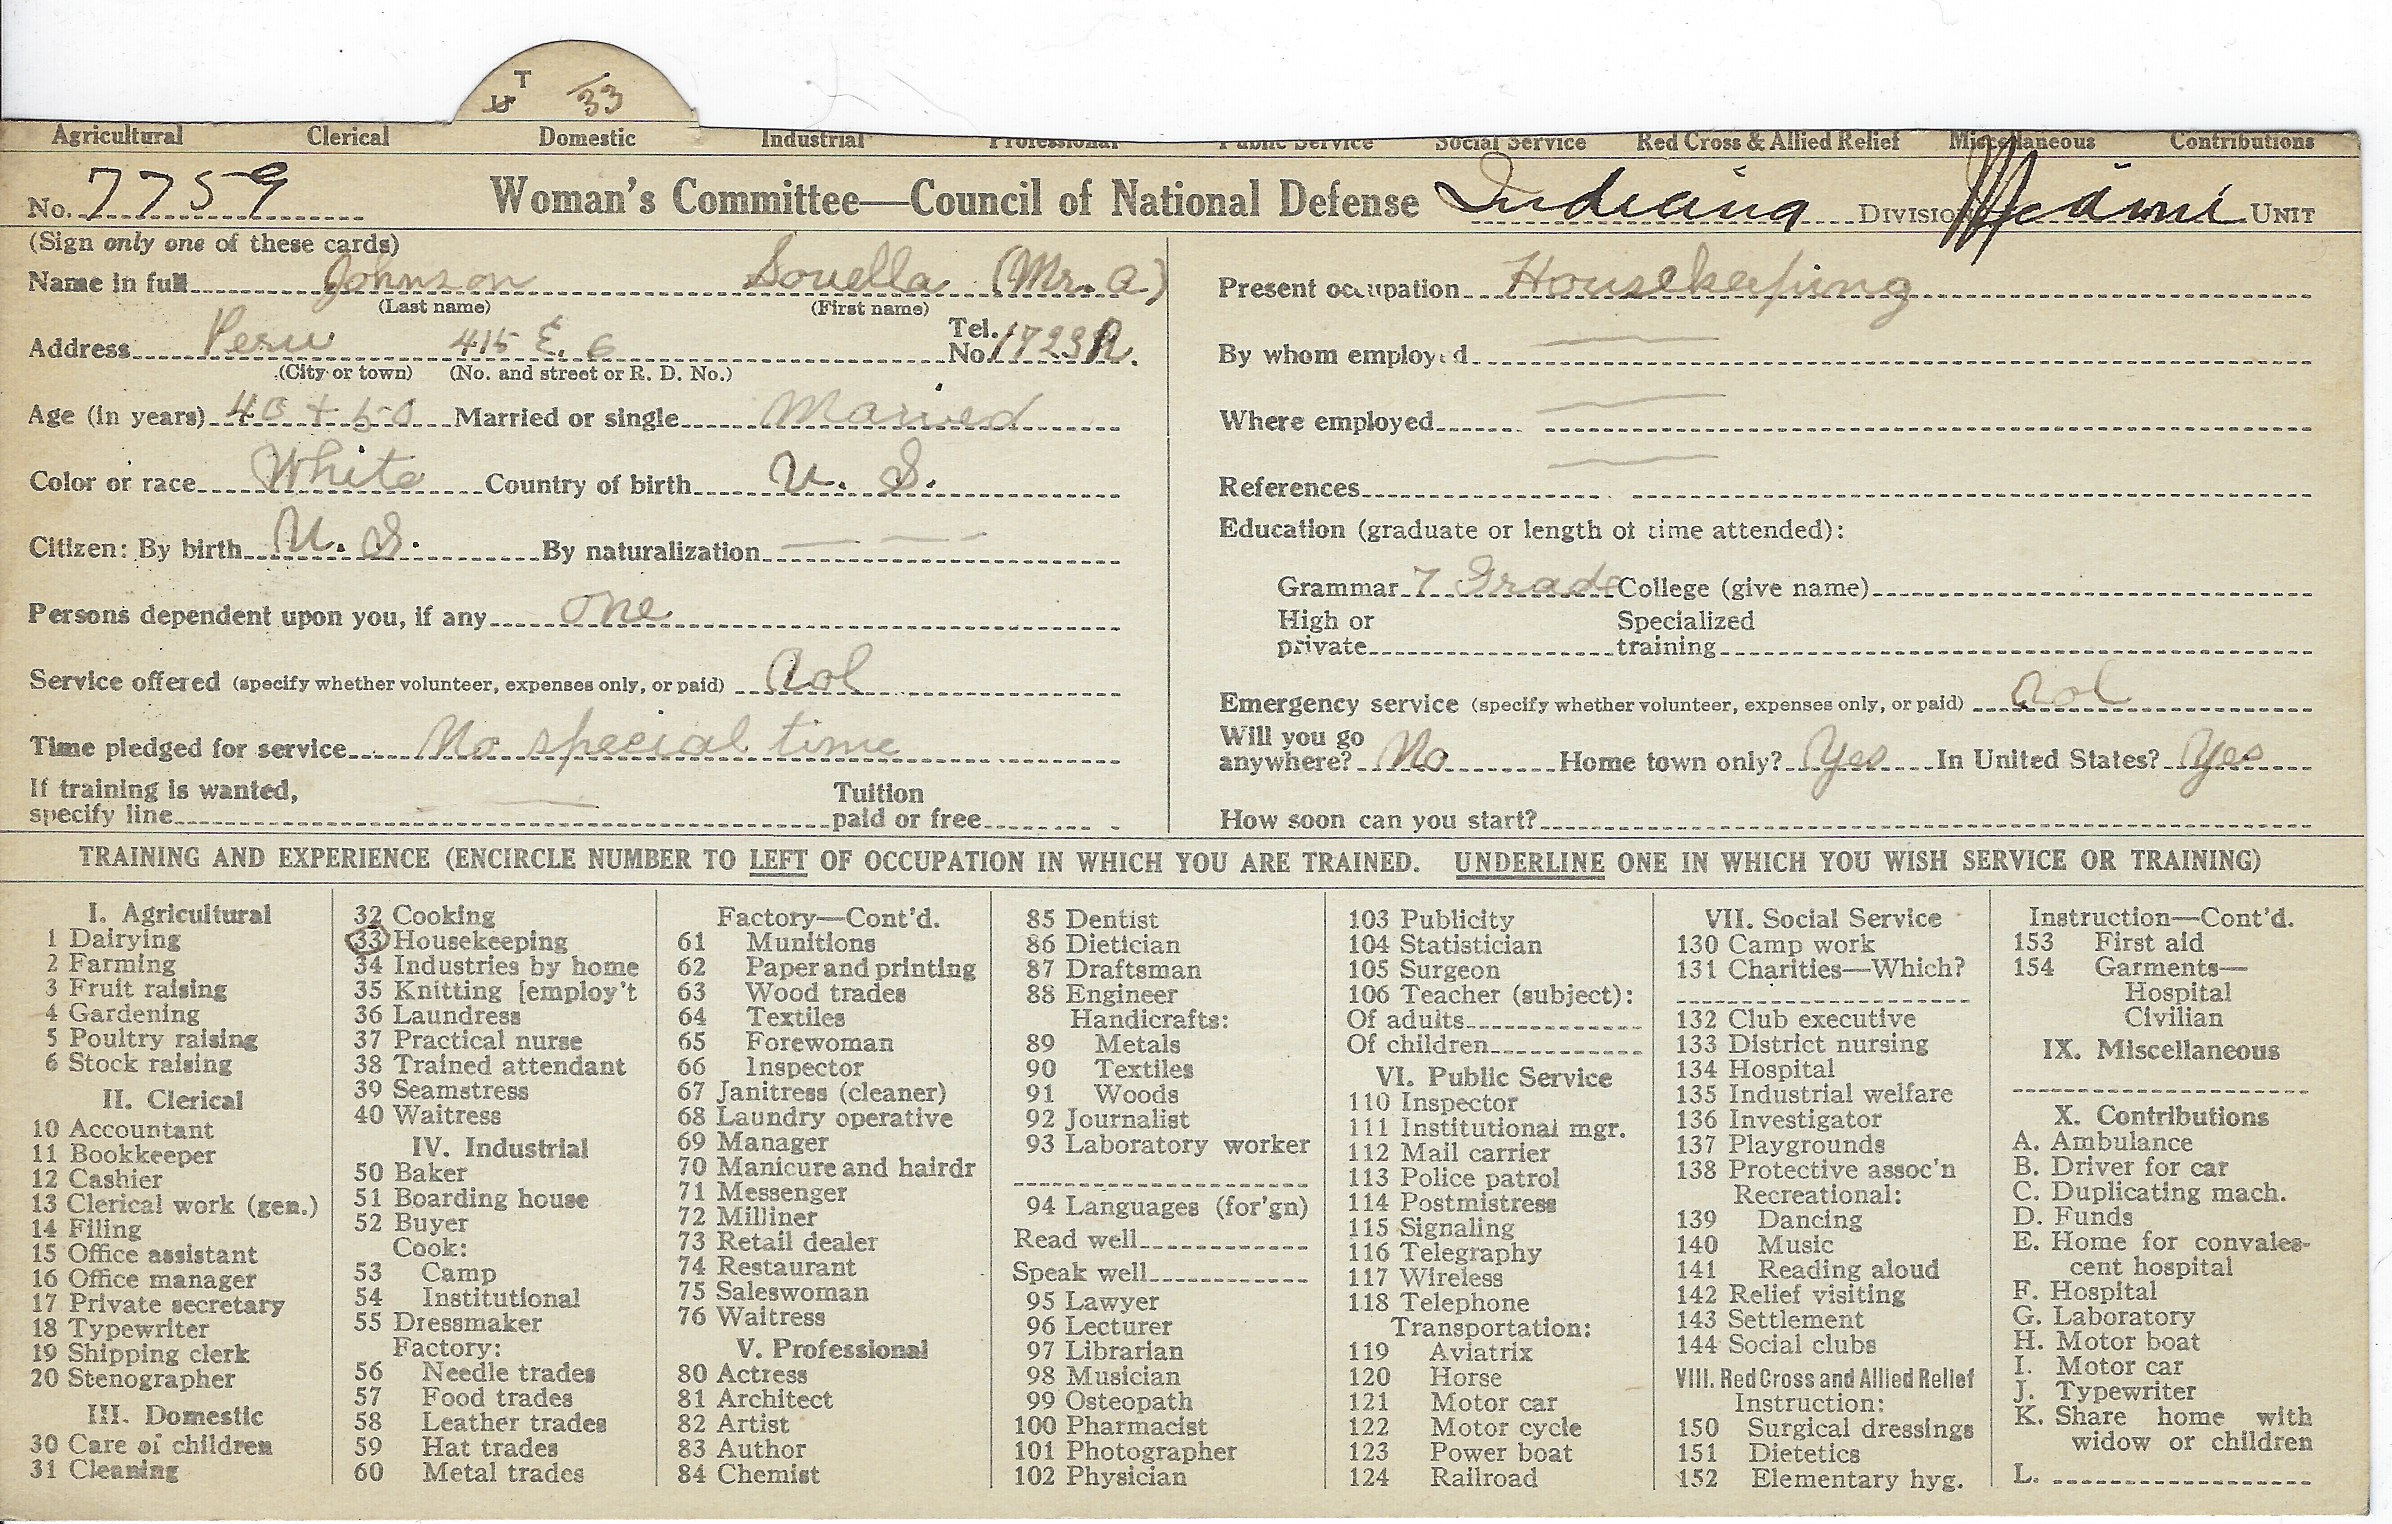 T
33
Agricultural Clerical Domestic Industrial Professional Public Service Social Service Red Cross & Allied Relief Miscellaneous Contributions
No. 7759 Woman's Committee—Council of National Defense Indiana DIVISION Miami UNIT
(Sign only one of these cards)
Name in full Johnson Louella (Mr. a)
(Last name) (First name)
Address Peru 415 E. 6 Tel. No. 1723R.
(City or town) (No. and street or R. D. No.)
Age (in years) 40 + 50 Married or single Married
Color or race White Country of birth U. S.
Citizen: By birth U. S. By naturalization — — —
Persons dependent upon you, if any one
Service offered (specify whether volunteer, expenses only, or paid) Vol
Time pledged for service No special time
If training is wanted,
specify line — Tuition
paid or free
Present occupation Housekeeping
By whom employed —
Where employed —
References —
Education (graduate or length of time attended):
Grammar 7 Grade College (give name)
High or private Specialized training
Emergency service (specify whether volunteer, expenses only, or paid) Vol
Will you go anywhere? No Home town only? Yes In United States? Yes
How soon can you start?
TRAINING AND EXPERIENCE (ENCIRCLE NUMBER TO LEFT OF OCCUPATION IN WHICH YOU ARE TRAINED. UNDERLINE ONE IN WHICH YOU WISH SERVICE OR TRAINING)
I. Agricultural
1 Dairying
2 Farming
3 Fruit raising
4 Gardening
5 Poultry raising
6 Stock raising
II. Clerical
10 Accountant
11 Bookkeeper
12 Cashier
13 Clerical work (gen.)
14 Filing
15 Office assistant
16 Office manager
17 Private secretary
18 Typewriter
19 Shipping clerk
20 Stenographer
III. Domestic
30 Care of children
31 Cleaning
32 Cooking
33 Housekeeping
34 Industries by home
35 Knitting [employ't
36 Laundress
37 Practical nurse
38 Trained attendant
39 Seamstress
40 Waitress
IV. Industrial
50 Baker
51 Boarding house
52 Buyer
Cook:
53 Camp
54 Institutional
55 Dressmaker
Factory:
56 Needle trades
57 Food trades
58 Leather trades
59 Hat trades
60 Metal trades
Factory—Cont'd.
61 Munitions
62 Paper and printing
63 Wood trades
64 Textiles
65 Forewoman
66 Inspector
67 Janitress (cleaner)
68 Laundry operative
69 Manager
70 Manicure and hairdr
71 Messenger
72 Milliner
73 Retail dealer
74 Restaurant
75 Saleswoman
76 Waitress
V. Professional
80 Actress
81 Architect
82 Artist
83 Author
84 Chemist
85 Dentist
86 Dietician
87 Draftsman
88 Engineer
Handicrafts:
89 Metals
90 Textiles
91 Woods
92 Journalist
93 Laboratory worker
94 Languages (for'gn)
Read well
Speak well
95 Lawyer
96 Lecturer
97 Librarian
98 Musician
99 Osteopath
100 Pharmacist
101 Photographer
102 Physician
103 Publicity
104 Statistician
105 Surgeon
106 Teacher (subject):
Of adults
Of children
VI. Public Service
110 Inspector
111 Institutional mgr.
112 Mail carrier
113 Police patrol
114 Postmistress
115 Signaling
116 Telegraphy
117 Wireless
118 Telephone
Transportation:
119 Aviatrix
120 Horse
121 Motor car
122 Motor cycle
123 Power boat
124 Railroad
VII. Social Service
130 Camp work
131 Charities—Which?
132 Club executive
133 District nursing
134 Hospital
135 Industrial welfare
136 Investigator
137 Playgrounds
138 Protective assoc'n
Recreational:
139 Dancing
140 Music
141 Reading aloud
142 Relief visiting
143 Settlement
144 Social clubs
VIII. Red Cross and Allied Relief
Instruction:
150 Surgical dressings
151 Dietetics
152 Elementary hyg.
Instruction—Cont'd.
153 First aid
154 Garments—
Hospital
Civilian
IX. Miscellaneous
X. Contributions
A. Ambulance
B. Driver for car
C. Duplicating mach.
D. Funds
E. Home for convales-
cent hospital
F. Hospital
G. Laboratory
H. Motor boat
I. Motor car
J. Typewriter
K. Share home with
widow or children
L.